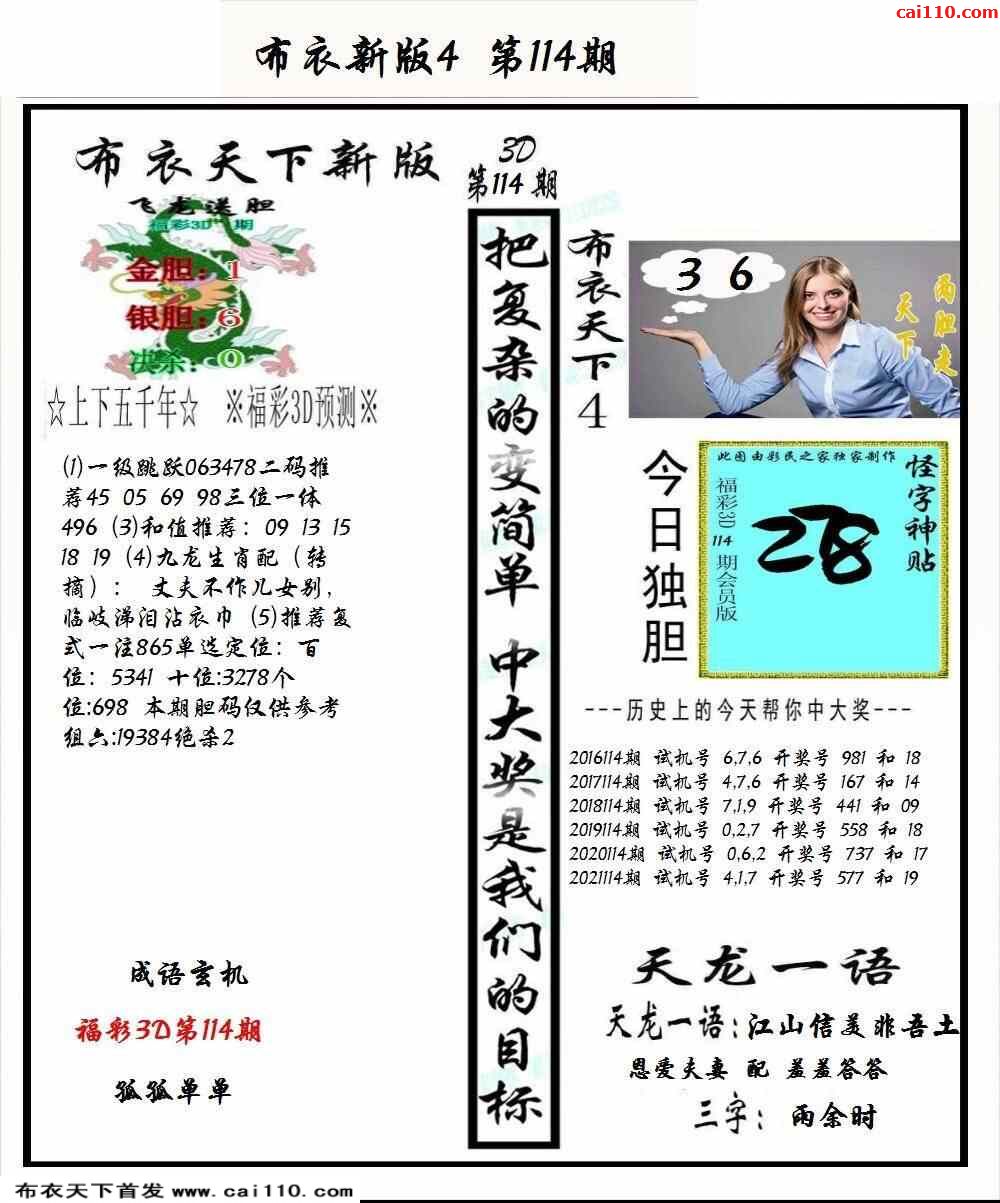 cai110.com
布衣新版4 第114期
布衣天下新版
飞龙送胆
福彩3D 期
金胆：1
银胆：6
决杀：0
☆上下五千年☆ ※福彩3D预测※
(1)一级跳跃063478二码推
荐45 05 69 98三位一体
496 (3)和值推荐：09 13 15
18 19 (4)九龙生肖配（转
摘）： 丈夫不作儿女别，
临岐涕泪沾衣巾 (5)推荐复
式一注865单选定位：百
位：5341 十位:3278个
位:698 本期胆码仅供参考
组六:19384绝杀2
成语玄机
福彩3D第114期
孤孤单单
3D
第114期
把复杂的变简单 中大奖是我们的目标
布衣天下4
3 6
两胆走
天下
今日独胆
此图由彩民之家独家制作
怪字神贴
福彩3D 114 期会员版
278
---历史上的今天帮你中大奖---
2016114期 试机号 6,7,6 开奖号 981 和 18
2017114期 试机号 4,7,6 开奖号 167 和 14
2018114期 试机号 7,1,9 开奖号 441 和 09
2019114期 试机号 0,2,7 开奖号 558 和 18
2020114期 试机号 0,6,2 开奖号 737 和 17
2021114期 试机号 4,1,7 开奖号 577 和 19
天龙一语
天龙一语:江山信美非吾土
恩爱夫妻 配 羞羞答答
三字： 雨余时
布衣天下首发 www.cai110.com